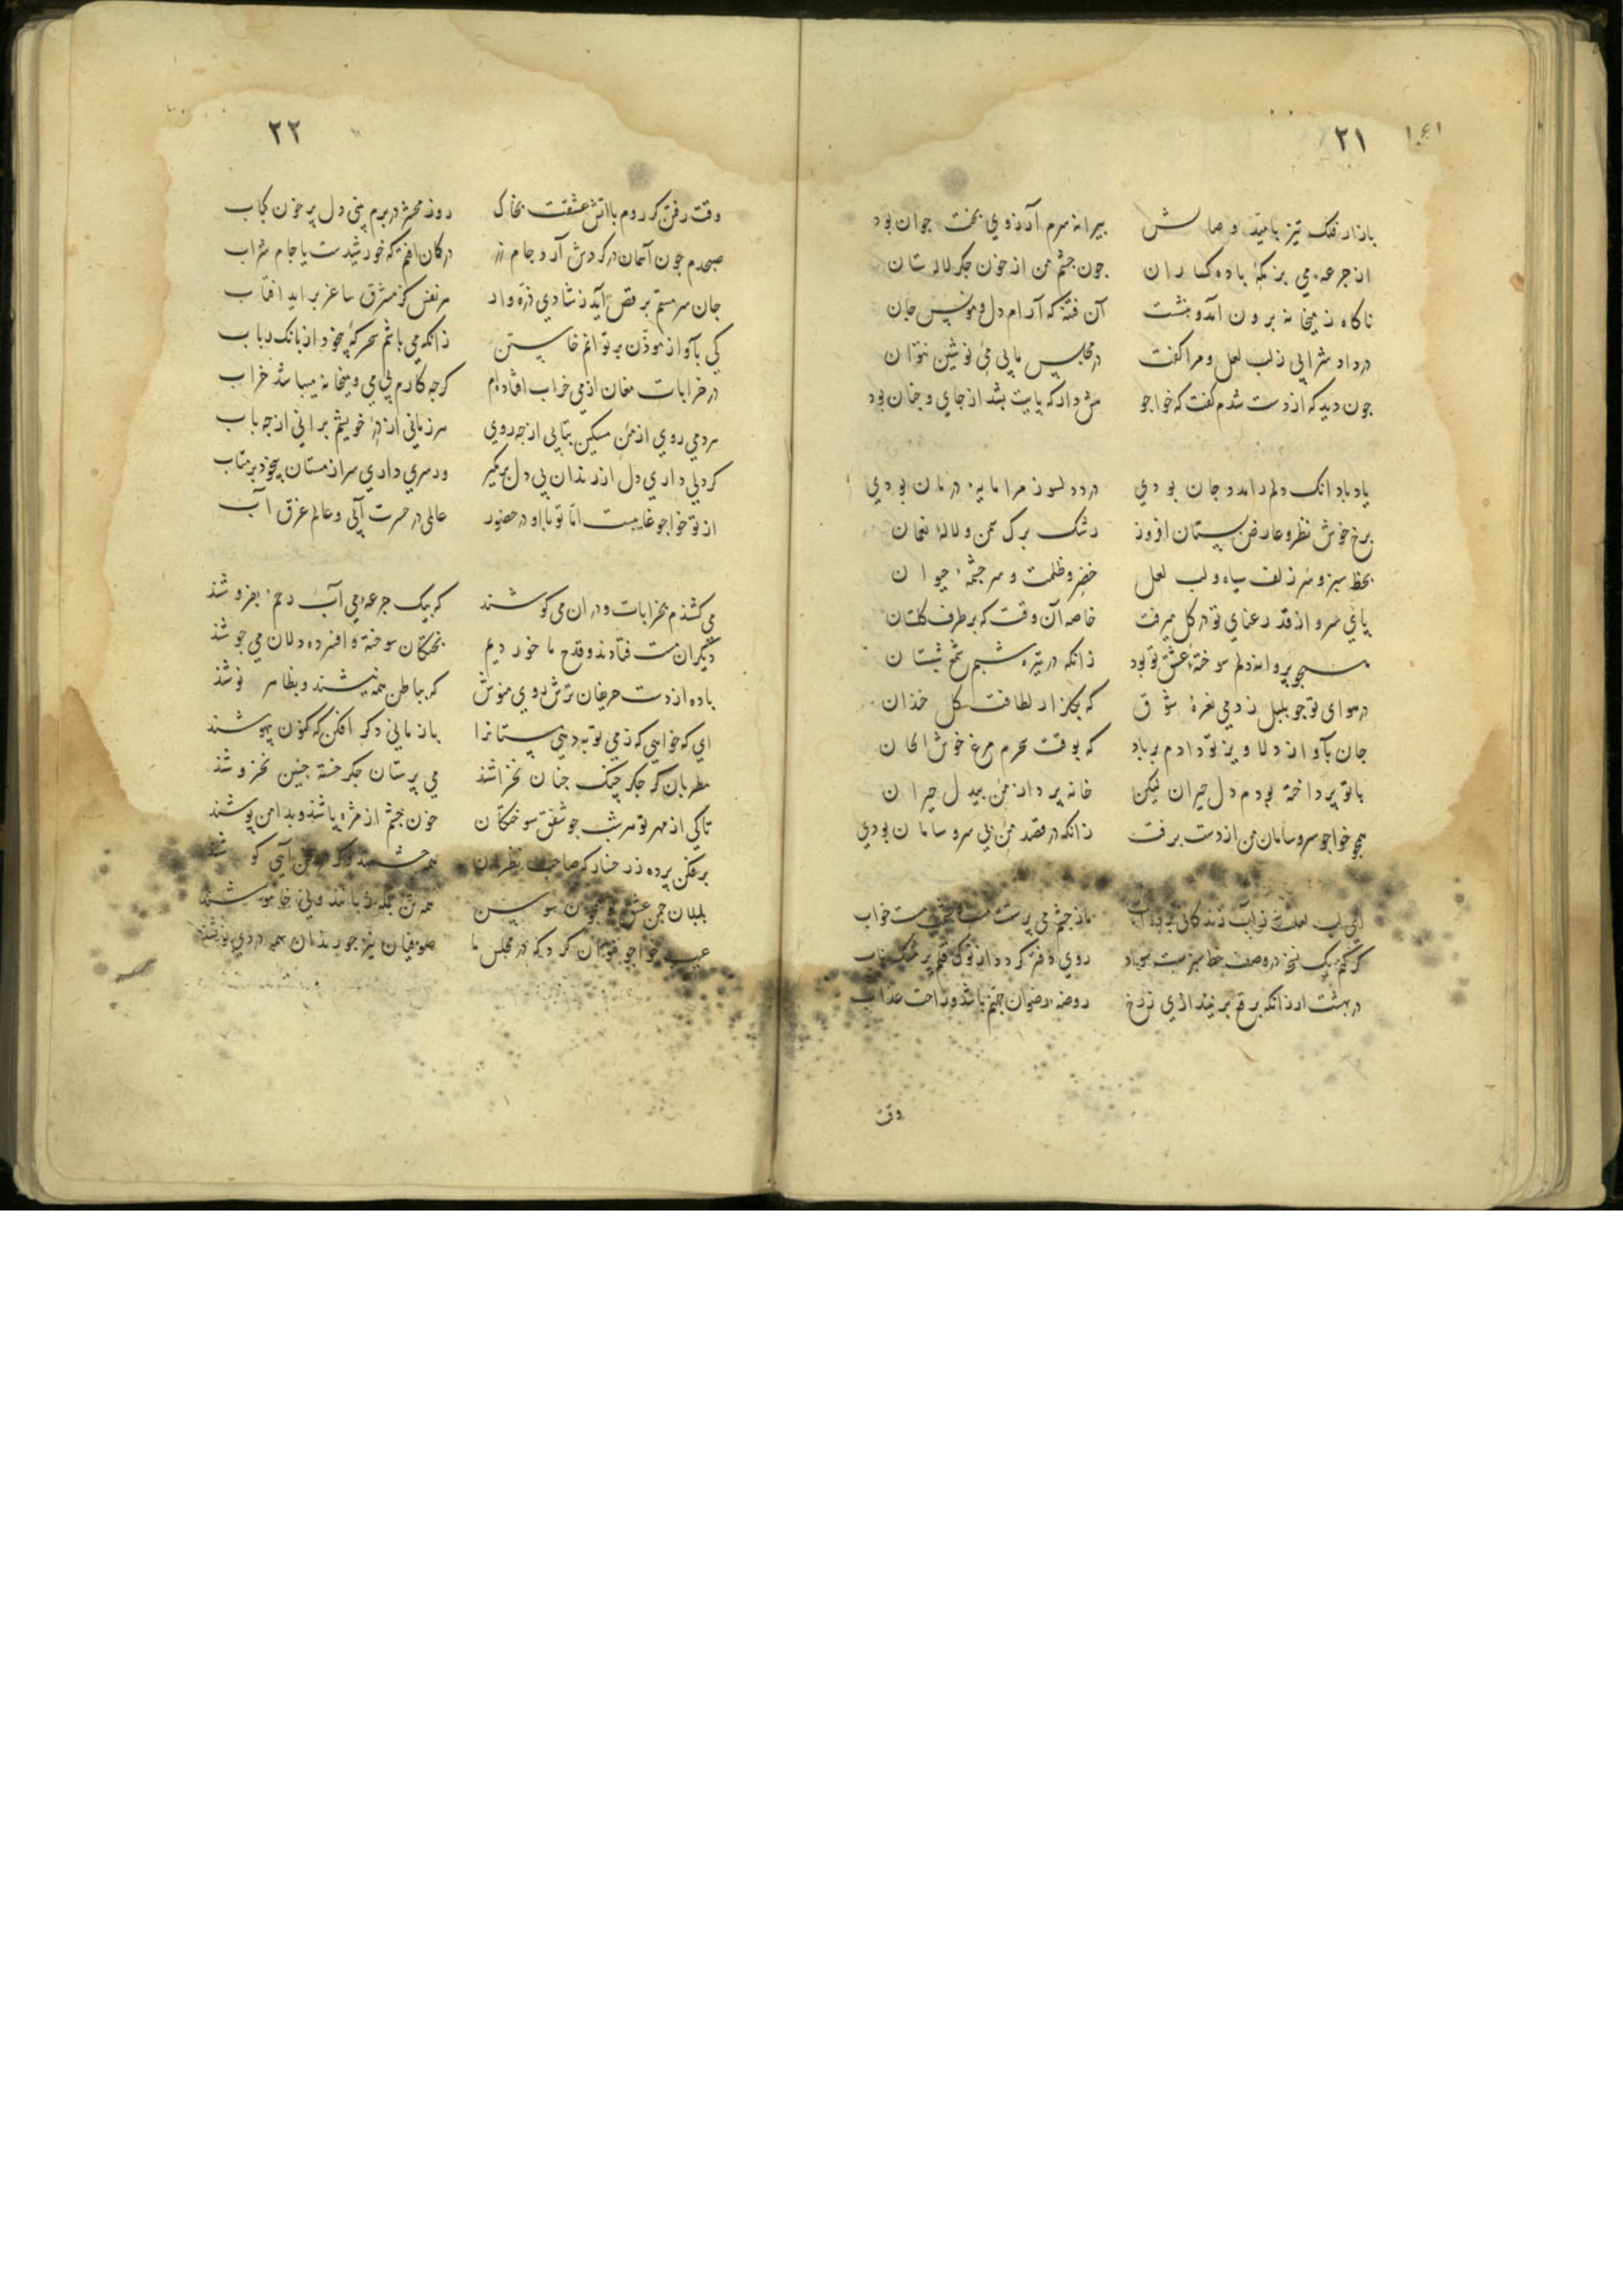 ۲۱
بازار فلک تیز بامید وصالش پیرانه سرم آرزوی بخت جوان بود
از جرعه می بزمگه باده کساران چون چشم من از خون جکر لالستان
ناکاه ز میخانه برون آمد و بنشست آن فتنه که آرام دل و مونس جان
در داد شرابی ز لب لعل و مرا گفت در مجلس ما بی می نوشین نتوان
جون دید که از دست شدم گفت که خواجو هش دار که پایت بشد از جای و جنان بود
یاد باد انک دلم را مدد جان بودی درد دلسوز مرا مایه درمان بودی
برخ خوش نظر و عارض بستان افروز رشک برک سمن و لاله نعمان
بخط سبز و سر زلف سیاه و لب لعل خضر و ظلمت و سرجشمه حیوان
پای سرو از قد رعنای تو در کل میرفت خاصه آن وقت که بر طرف کلستان
همجو پروانه دلم سوخته عشق تو بود زانکه در تیره شبم شمع شبستان
در هوای تو جو بلبل زدمی نعره شوق که بکلزار لطافت کل خندان
جان بآواز دلاویز تو دادم بر باد که بوقت سحرم مرغ خوش الحان
با تو پرداخته بودم دل حیران لیکن خانه پرداز من بیدل حیران
همجو خواجو سر و سامان من از دست برفت زانکه در قصد من بی سر و سامان بودی
ای لب لعلت ز آب زندکانی برده آب ما ز جشم می پرستت مست و جشمت مست خواب
کر کنم یک نسخه در وصف خط سبزت سواد روی دفتر کردد از نوک قلم پر مشک ناب
در بهشت ار زانکه برقع بر نیندازی ز رخ روضه رضوان جهنم باشد و راحت عذاب
وقت
۲۲
وقت رفتن کر روم با آتش عشقت بخاک روز محشر در برم بینی دل پر خون کباب
صبحدم جون آسمان در کردش آرد جام زر در کمان افتم که خورشیدست یا جام شراب
جان سرمستم برقص آید ز شادی ذره وار هر نفس کز مشرق ساغر براید افتاب
کی بآواز موذن بر توانم خاستن زانکه می باشم سحرکه بیخود از بانک رباب
در خرابات مغان از می خراب افتاده‌ام کرجه کارم بی می و میخانه میباشد خراب
هر دمی روی از من مسکین بتابی از جه روی هر زمانی از در خویشم برانی از جه باب
کر دلی داری دل از رندان بی دل بر مکیر ور سری داری سر از مستان بیخود بر متاب
از تو خواجو غایبست اما تو با او در حضور عالمی در حسرت آبی و عالم غرق آب
می کشندم بخرابات و در ان می کوشند که بیک جرعه می آب رخم بفروشند
دیگران مست فتادند و قدح ما خوردیم پختکان سوخته و افسرده دلان می جوشند
باده از دست حریفان ترش روی منوش که بباطن همه نیشند و بظاهر نوشند
ای که خواهی که ز می توبه دهی مستانرا باز مانی دکر افکن که کنون بیهوشند
مطربان کر جکر چنک جنان نخراشند می پرستان جکر خسته جنین نخروشند
تا کی از مهر تو هر شب جو شفق سوختکان خون جشم از مژه پاشند و بدامن پوشند
برفکن پرده ز رخسار که صاحب نظران همه جشمند
بلبلان جمن عشق تو همجون سوسن همه تن جمله زبانند ولی خاموشند
عیب خواجو نتوان کرد که در مجلس ما صوفیان نیز جو رندان همه دردی نوشند